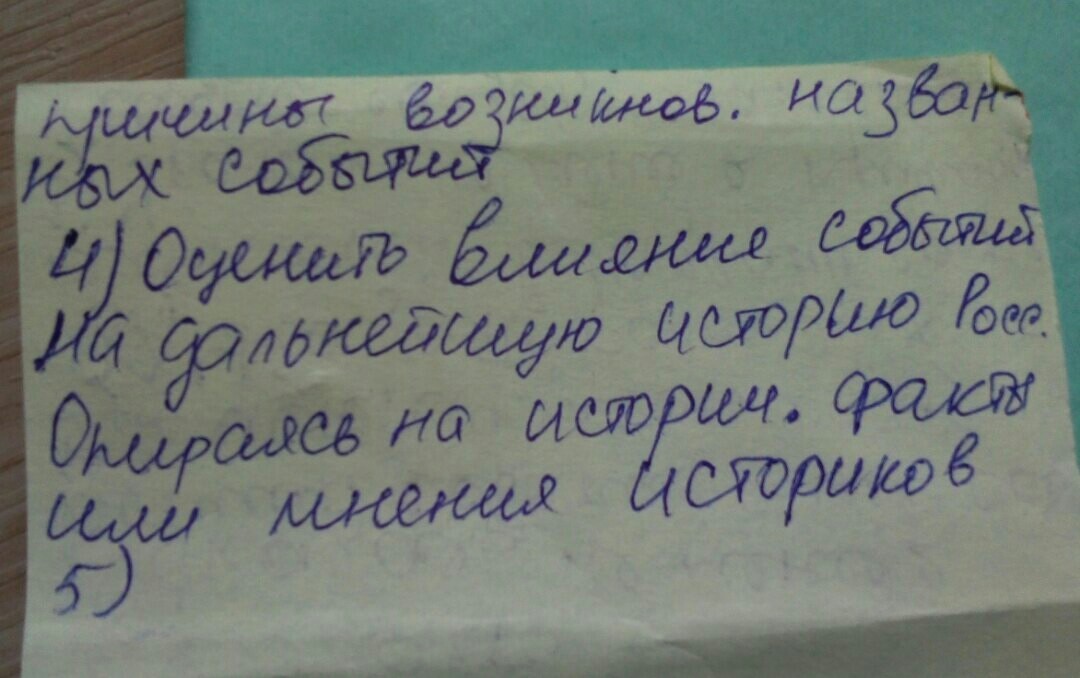 причины возникнов. назван-
ных событий
4) Оценить влияние событий
на дальнейшую историю Росс.
Опираясь на истории. факты
или мнения историков
5)